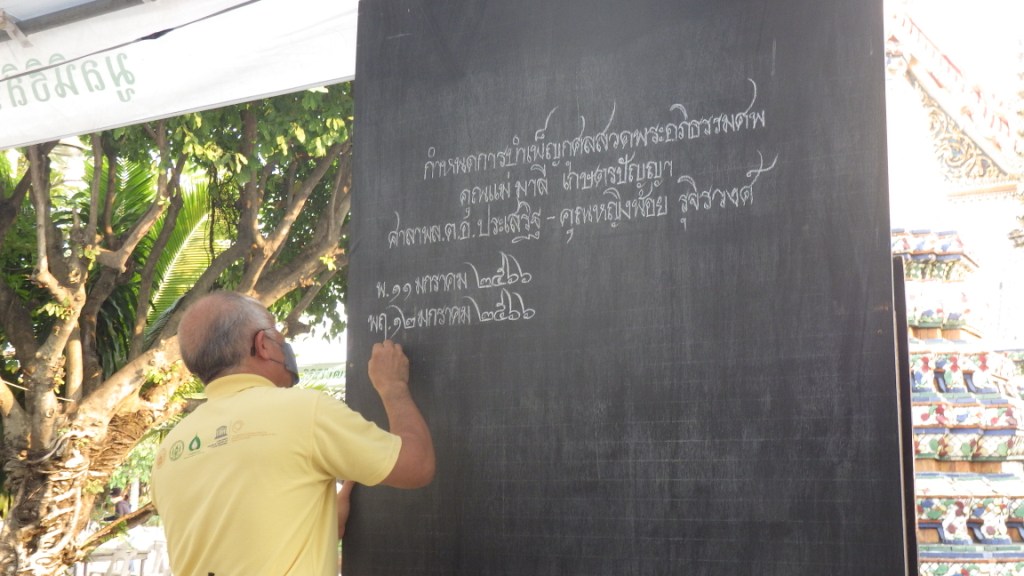 กำหนดการบำเพ็ญกุศลสวดพระอภิธรรมศพ
คุณแม่ มาลี เกษตรปัญญา
ศาลาพล.ต.อ.ประเสริฐ - คุณหญิงน้อย รุจิรวงศ์
พ. ๑๑ มกราคม ๒๕๖๖
พฤ. ๑๒ มกราคม ๒๕๖๖